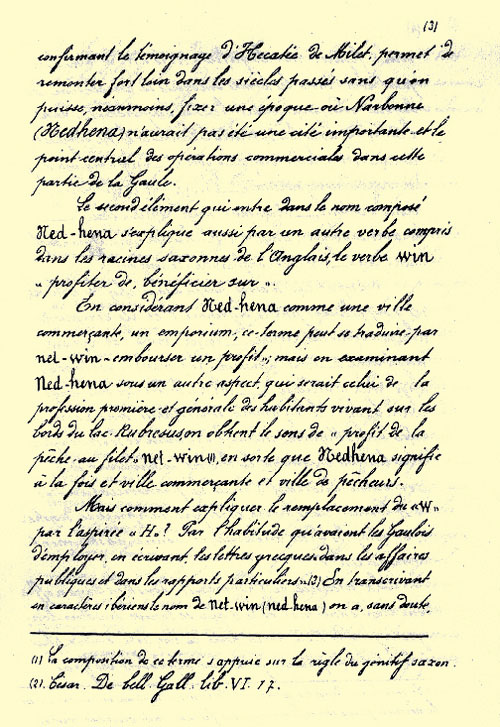 (3)
confirmant le témoignage d'Hecatée de Milet, permet de
remonter fort loin dans les siècles passés sans qu'on
puisse, néanmoins, fixer une époque où Narbonne
(Nedhena) n'aurait pas été une cité importante et le
point central des opérations commerciales dans cette
partie de la Gaule.
Le second élément qui entre dans le nom composé
Ned-hena s'explique aussi par un autre verbe compris
dans les racines saxonnes de l'Anglais, le verbe win
« profiter de, bénéficier sur ».
En considérant Ned-hena comme une ville
commerçante, un emporium, ce terme peut se traduire par
net-win - embourser un profit »; mais en examinant
Ned-hena sous un autre aspect, qui serait celui de la
profession première et générale des habitants vivant sur les
bords du lac Rubresus on obtient le sens de « profit de la
pêche au filet » net-win (1), en sorte que Nedhena signifie
à la fois et ville commerçante et ville de pêcheurs.
Mais comment expliquer le remplacement du «W»
par l'aspirée « H »? Par l'habitude qu'avaient les Gaulois
d'employer, en écrivant, les lettres grecques dans les affaires
publiques et dans les rapports particuliers » (2) En transcrivant
en caractères ibériens le nom de net-win (ned hena) on a, sans doute,
(1) La composition de ce terme s'appuie sur la règle du génitif saxon.
(2). César. De bell. Gall. lib. VI. 17.